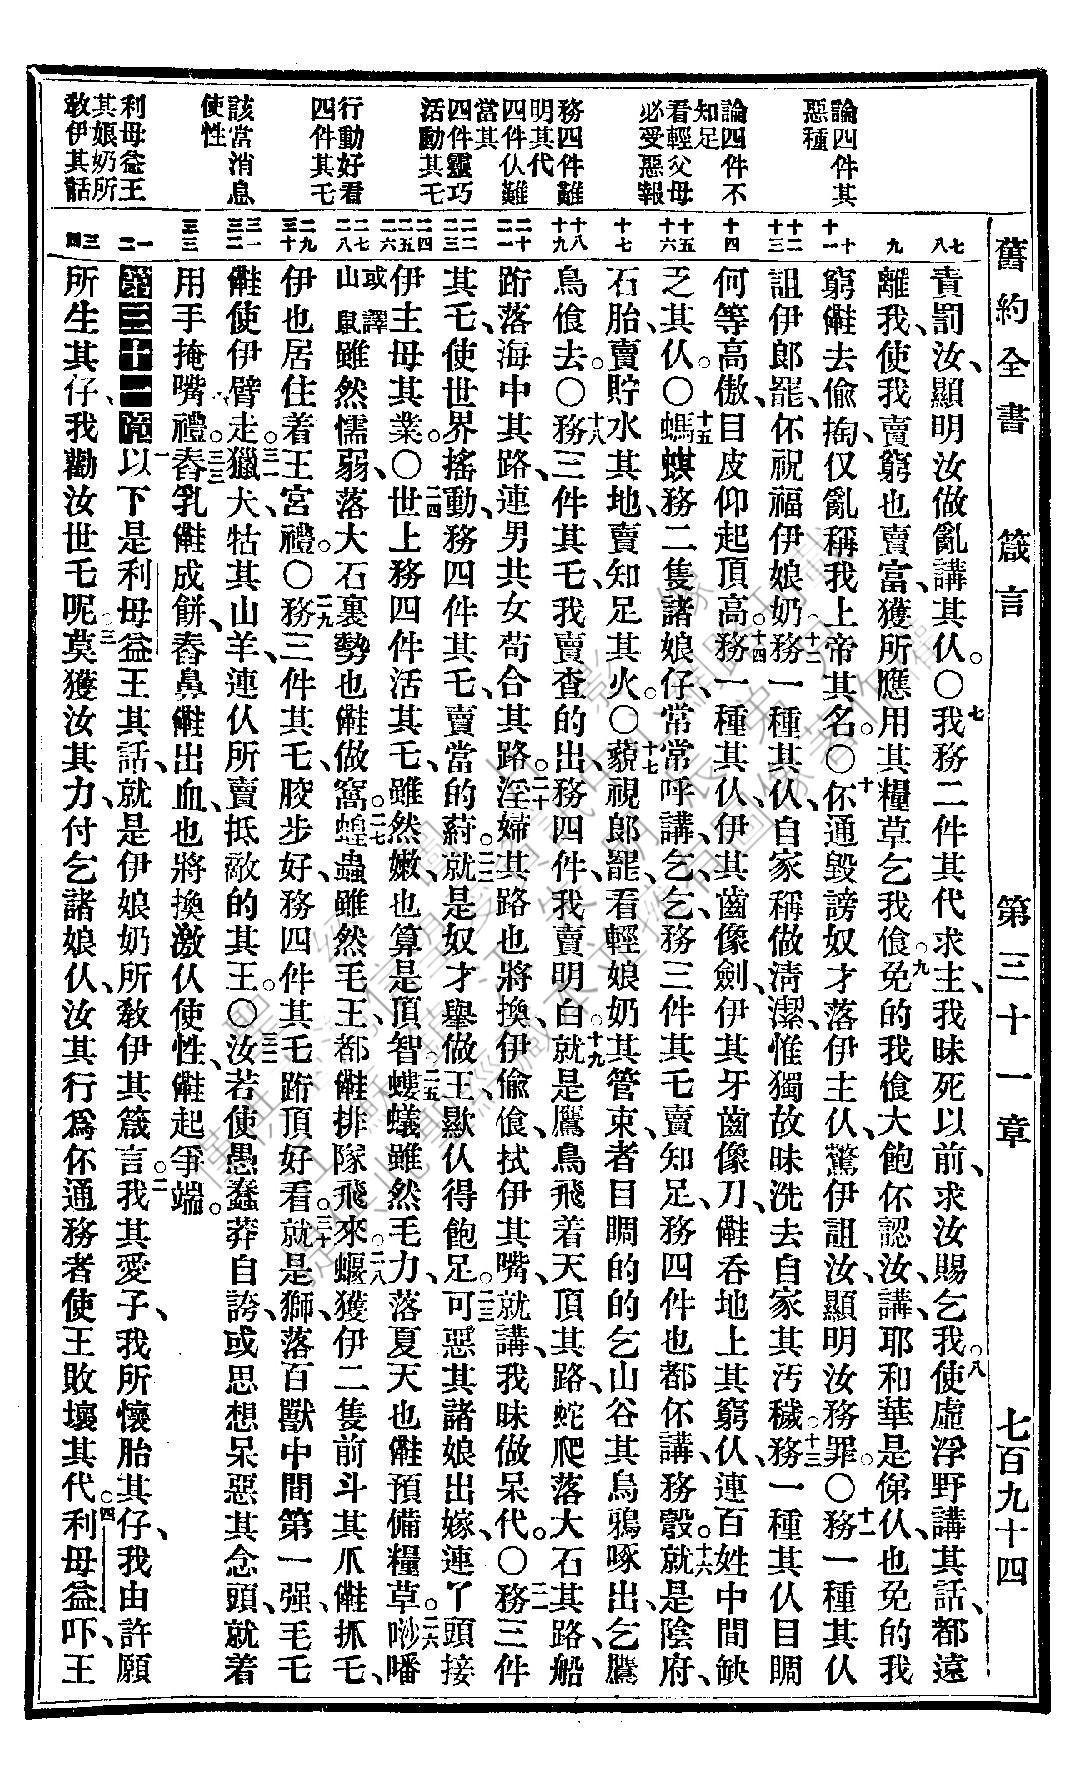 舊約全書 箴言 第三十一章 七百九十四
論四件其
惡種
論四件不
知足
看輕父母
必受惡報
務四件難
明其代
四件仈難
當其
四件靈巧
活動其乇
行動好看
四件其乇
該當消息
使性
利母益王
其娘奶所
敎伊其話
七
八
九
十
十一
十二
十三
十四
十五
十六
十七
十八
十九
二十
二一
二二
二三
二四
二五
二六
二七
二八
二九
三十
三一
三二
三三
一
二
三
四
責罰汝、顯明汝做亂講其仈。〇七我務二件其代求主、我昧死以前、求汝賜乞我。八使虛浮野講其話、都遠
離我、使我賣窮也賣富、獲所應用其糧草乞我飡。九免的我飡大飽伓認汝、講耶和華是俤仈、也免的我
窮、㑚去偷掏、仅亂稱我上帝其名。〇十伓通毀謗奴才落伊主仈、驚伊詛汝、顯明汝務罪。〇十一務一種其仈
詛伊郎罷、伓祝福伊娘奶、十二務一種其仈、自家稱做淸潔、惟獨故昧洗去自家其汚穢。十三務一種其仈目睭
何等高傲、目皮仰起頂高。十四務一種其仈、伊其齒像劍、伊其牙齒像刀、㑚吞地上其窮仈、連百姓中間缺
乏其仈。〇十五螞蜞務二隻諸娘仔、常常呼講、乞乞、務三件其乇賣知足、務四件也都伓講務彀。十六就是陰府、
石胎、賣貯水其地、賣知足其火。〇十七藐視郎罷、看輕娘奶其管束者、目睭的的乞山谷其烏鴉啄出、乞鷹
鳥飡去。〇十八務三件其乇、我賣查的出、務四件我賣明白。十九就是鷹鳥飛着天頂其路、蛇爬落大石其路、船
䟓落海中其路、連男共女苟合其路。二十淫婦其路也將換、伊偸飡、拭伊其嘴、就講、我昧做呆代。〇二一務三件
其乇、使世界搖動、務四件其乇、賣當的葤。二二就是奴才舉做王、歇仈得飽足。二三可惡其諸娘出嫁、連丫頭接
伊主母其業。〇二四世上務四件活其乇、雖然嫩、也算是頂智。二五螻蟻雖然乇力、落夏天也㑚預備糧草。二六唦噃
或譯山鼠雖然懦弱、落大石裏勢也㑚做窩。二七蝗蟲雖然乇王、都㑚排隊飛來。二八蝘獲伊二隻前斗其爪㑚抓乇、
伊也居住着王宮禮。〇二九務三件其乇骹步好、務四件其乇䟓頂好看。三十就是獅、落百獸中間第一强、乇乇
㑚使伊臂走。三一獵犬、牯其山羊、連仈所賣抵敵的其王。〇三二汝若使愚蠢莽自誇、或思想呆惡其念頭、就着
用手掩嘴禮。三三舂乳㑚成餠、舂鼻㑚出血、也將換激仈使性、㑚起爭端。
第三十一章 一以下是利母益王其話、就是伊娘奶所敎伊其箴言。二我其愛子、我所懷胎其仔、我由許願
所生其仔、我勸汝世乇呢。三莫獲汝其力、付乞諸娘仈、汝其行爲伓通務者使王敗壞其代。四利母益吓、王